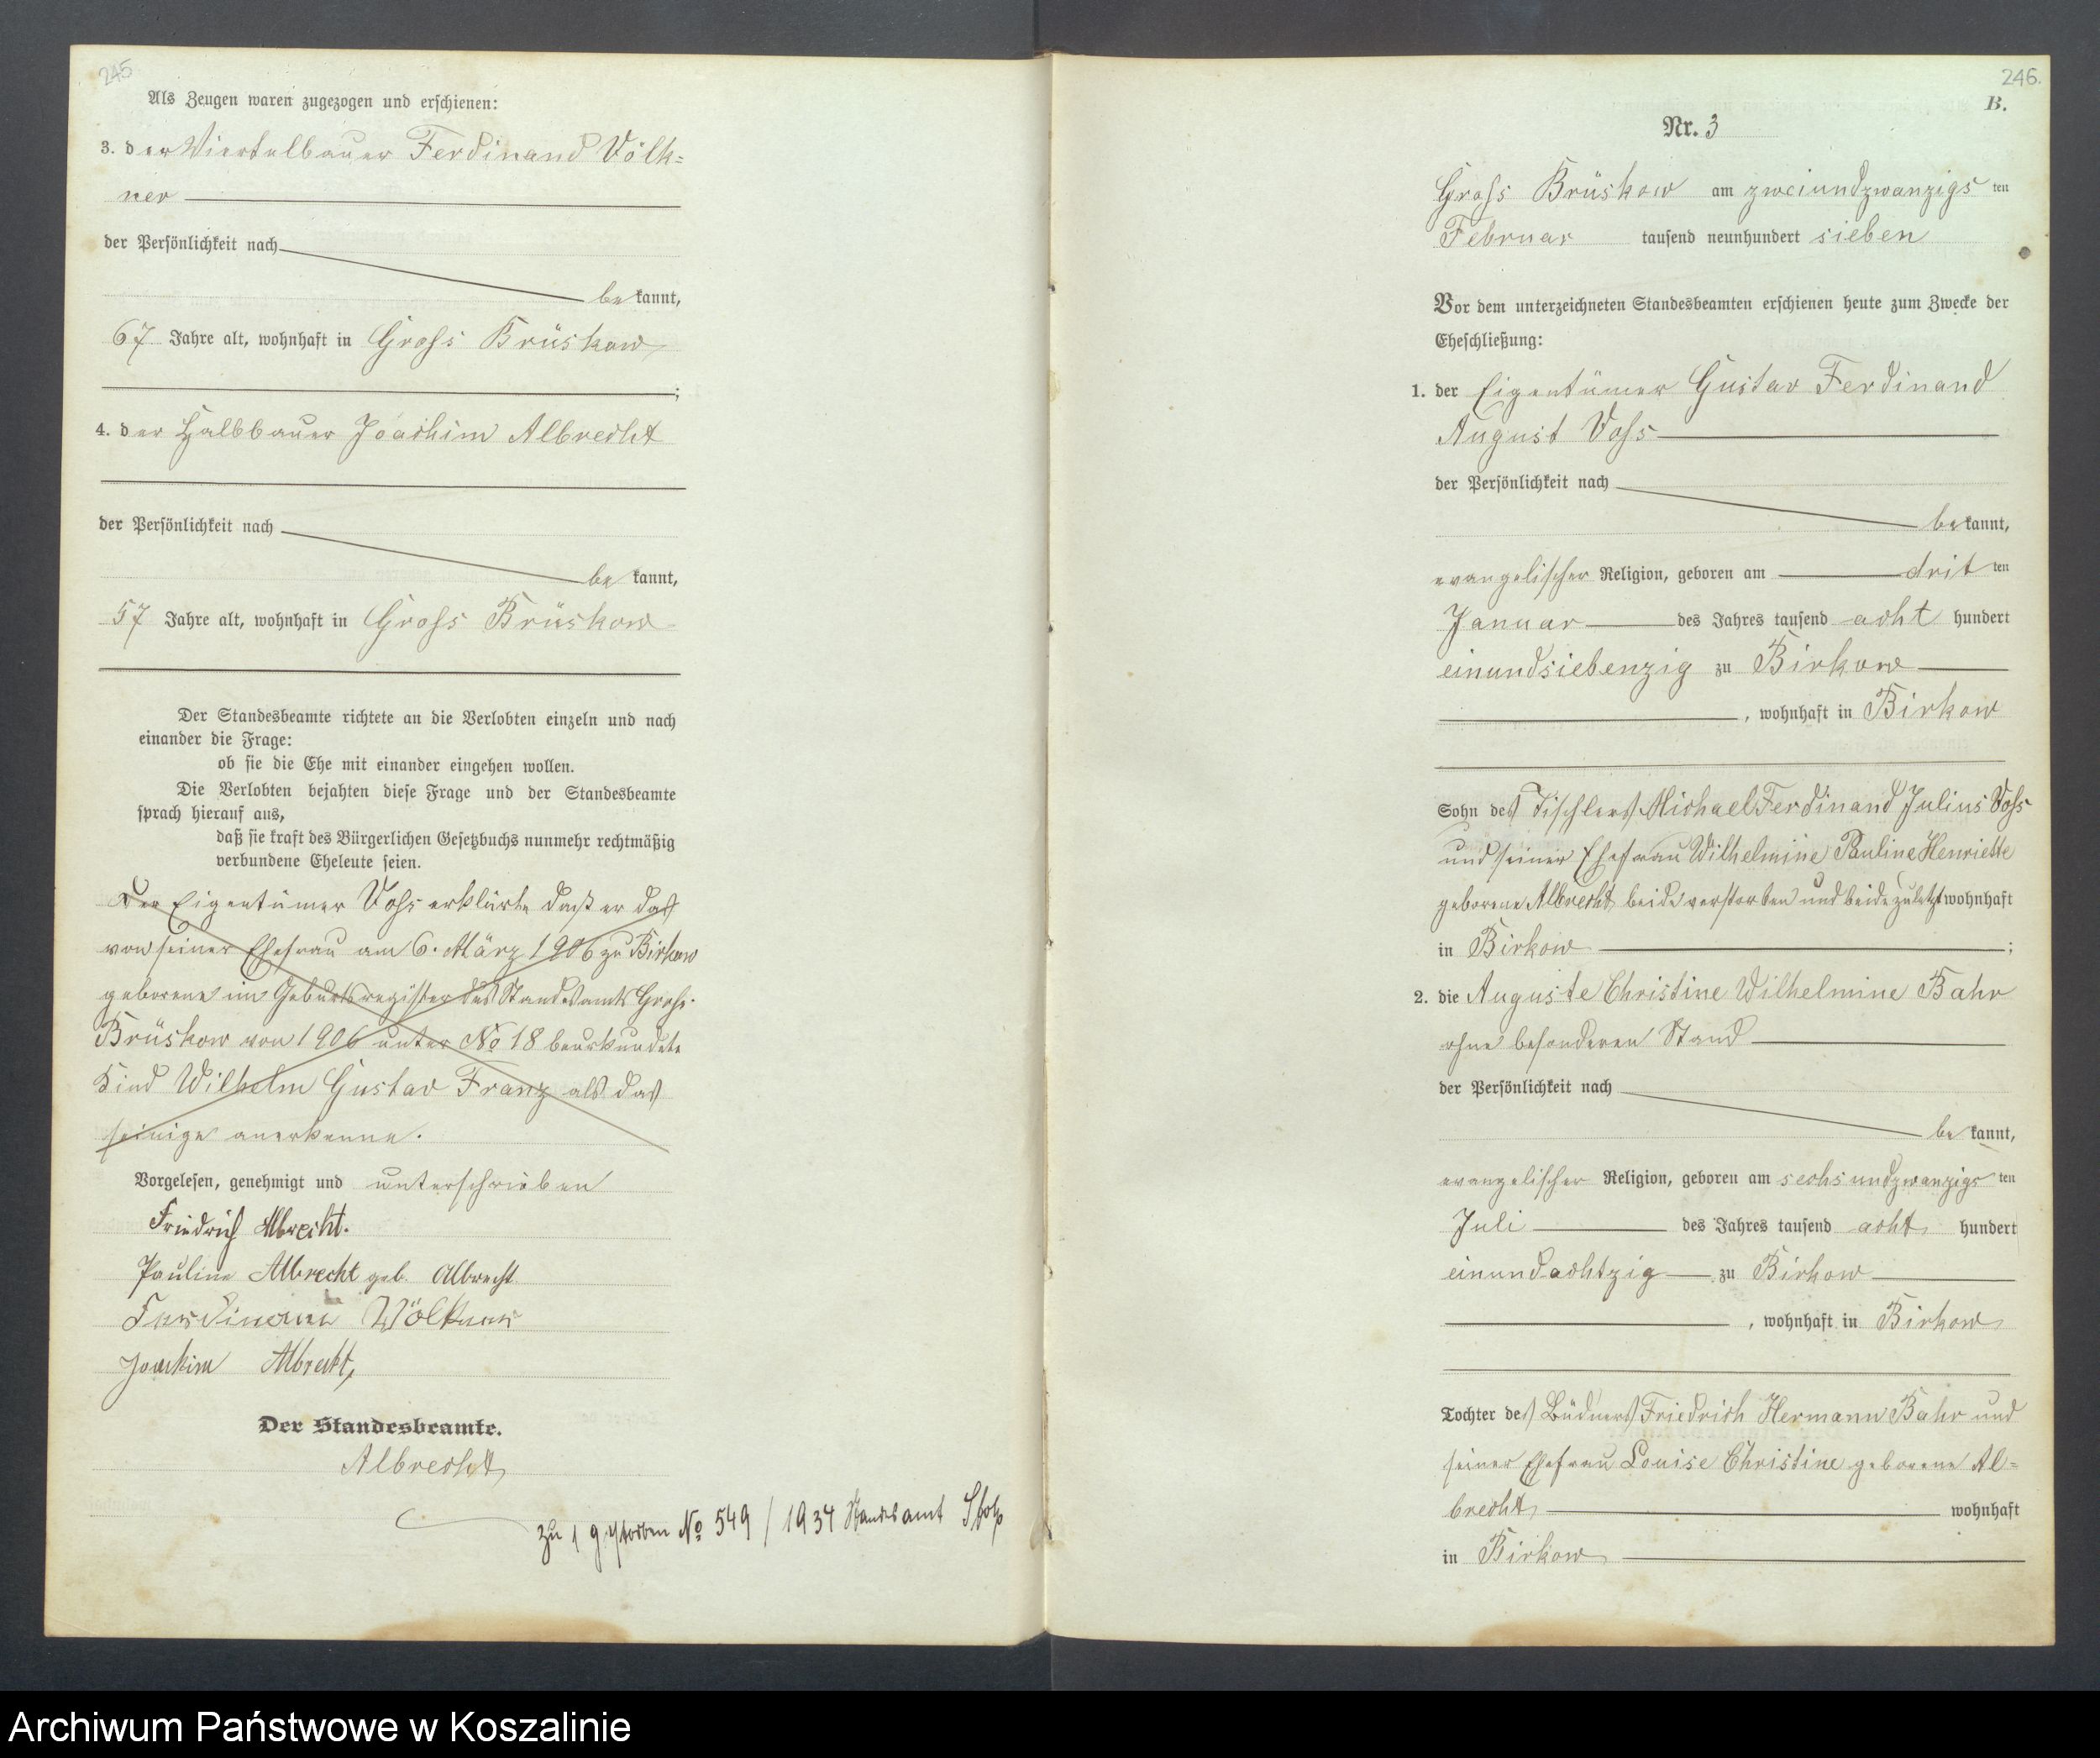 245
Als Zeugen waren zugezogen und erschienen:
3. der Viertelbauer Ferdinand Völk=
ner
der Persönlichkeit nach
bekannt,
67 Jahre alt, wohnhaft in Gross Brüskow
;
4. der Halbbauer Joachim Albrecht
der Persönlichkeit nach
bekannt,
57 Jahre alt, wohnhaft in Gross Brüskow
Der Standesbeamte richtete an die Verlobten einzeln und nach
einander die Frage:
ob sie die Ehe mit einander eingehen wollen.
Die Verlobten bejahten diese Frage und der Standesbeamte
sprach hierauf aus,
daß sie kraft des Bürgerlichen Gesetzbuchs nunmehr rechtmäßig
verbundene Eheleute seien.
Der Eigentümer Voss erklärte daß er das
von seiner Ehefrau am 6. März 1906 zu Birkow
geborene im Geburtsregister des Standesamts Gross-
Brüskow von 1906 unter No 18 beurkundete
Kind Wilhelm Gustav Franz als das
seinige anerkenne.
Vorgelesen, genehmigt und unterschrieben
Friedrich Albrecht.
Pauline Albrecht geb. Albrecht
Ferdinand Völkner
Joachim Albrecht,
Der Standesbeamte.
Albrecht
zu 1 gestorben No 549 / 1934 Standesamt Stolp
246.
B.
Nr. 3
Gross Brüskow am zweiundzwanzigs ten
Februar tausend neunhundert sieben
Vor dem unterzeichneten Standesbeamten erschienen heute zum Zwecke der
Eheschließung:
1. der Eigentümer Gustav Ferdinand
August Voss
der Persönlichkeit nach
bekannt,
evangelischer Religion, geboren am drit ten
Januar des Jahres tausend acht hundert
einundsiebenzig zu Birkow
, wohnhaft in Birkow
Sohn des Tischlers Michael Ferdinand Julius Voss
und seiner Ehefrau Wilhelmine Pauline Henriette
geborene Albrecht beide verstorben und beide zuletzt wohnhaft
in Birkow ;
2. die Auguste Christine Wilhelmine Bahr
ohne besonderen Stand
der Persönlichkeit nach
bekannt,
evangelischer Religion, geboren am sechsundzwanzigs ten
Juli des Jahres tausend acht hundert
einundachtzig zu Birkow
, wohnhaft in Birkow
Tochter des Büdners Friedrich Hermann Bahr und
seiner Ehefrau Louise Christine geborene Al=
brecht wohnhaft
in Birkow
Archiwum Państwowe w Koszalinie